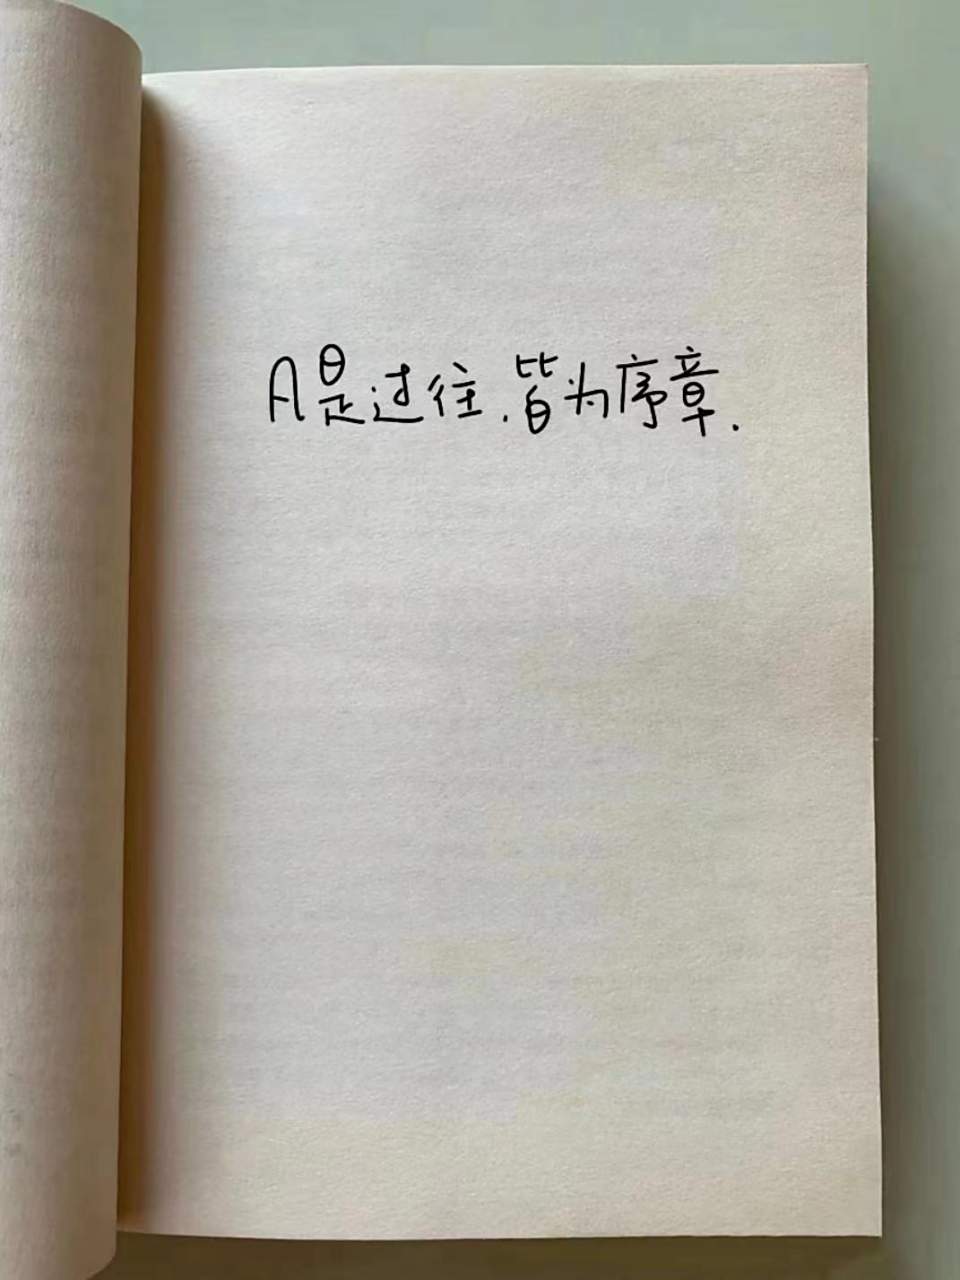 凡是过往.皆为序章.